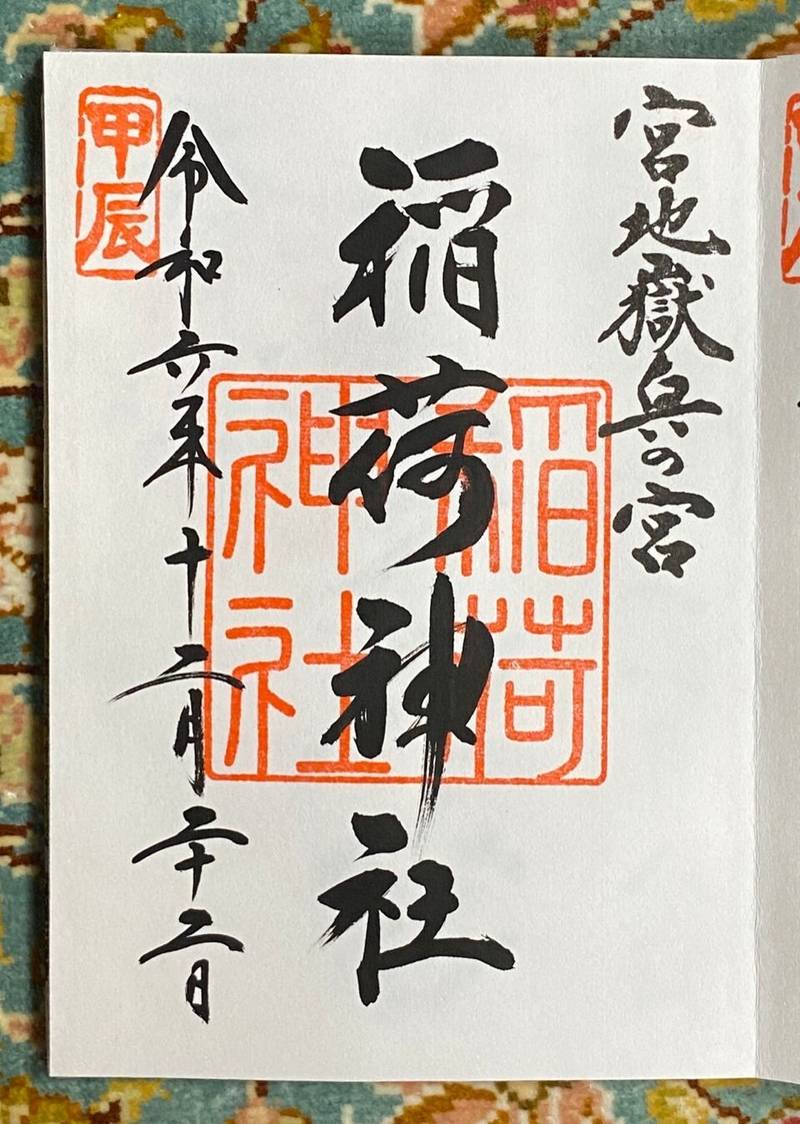 宮地嶽奥の宮
稲荷神社
令和六年十二月二十二日
甲辰
稲荷
神社